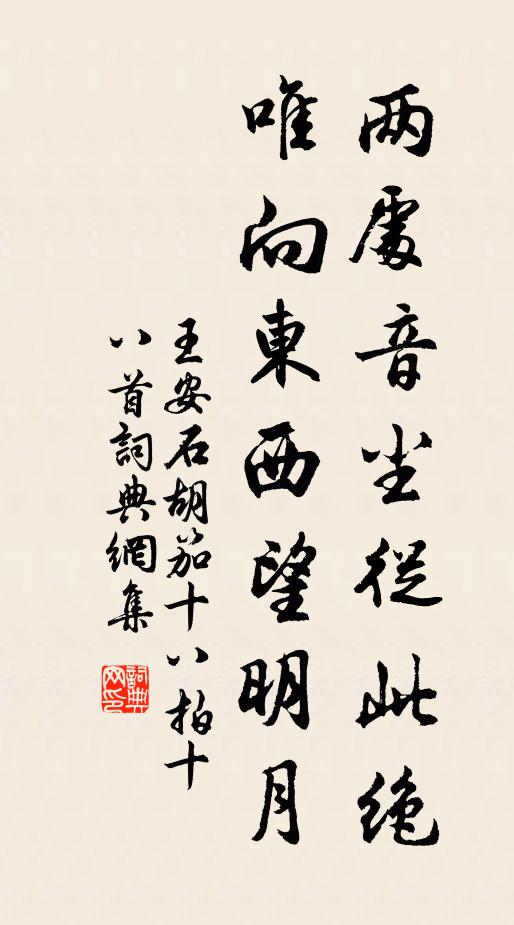 两處音尘從此绝
唯向東西望明月
王安石胡笳十八拍十
八首詞典網集
詞典网印